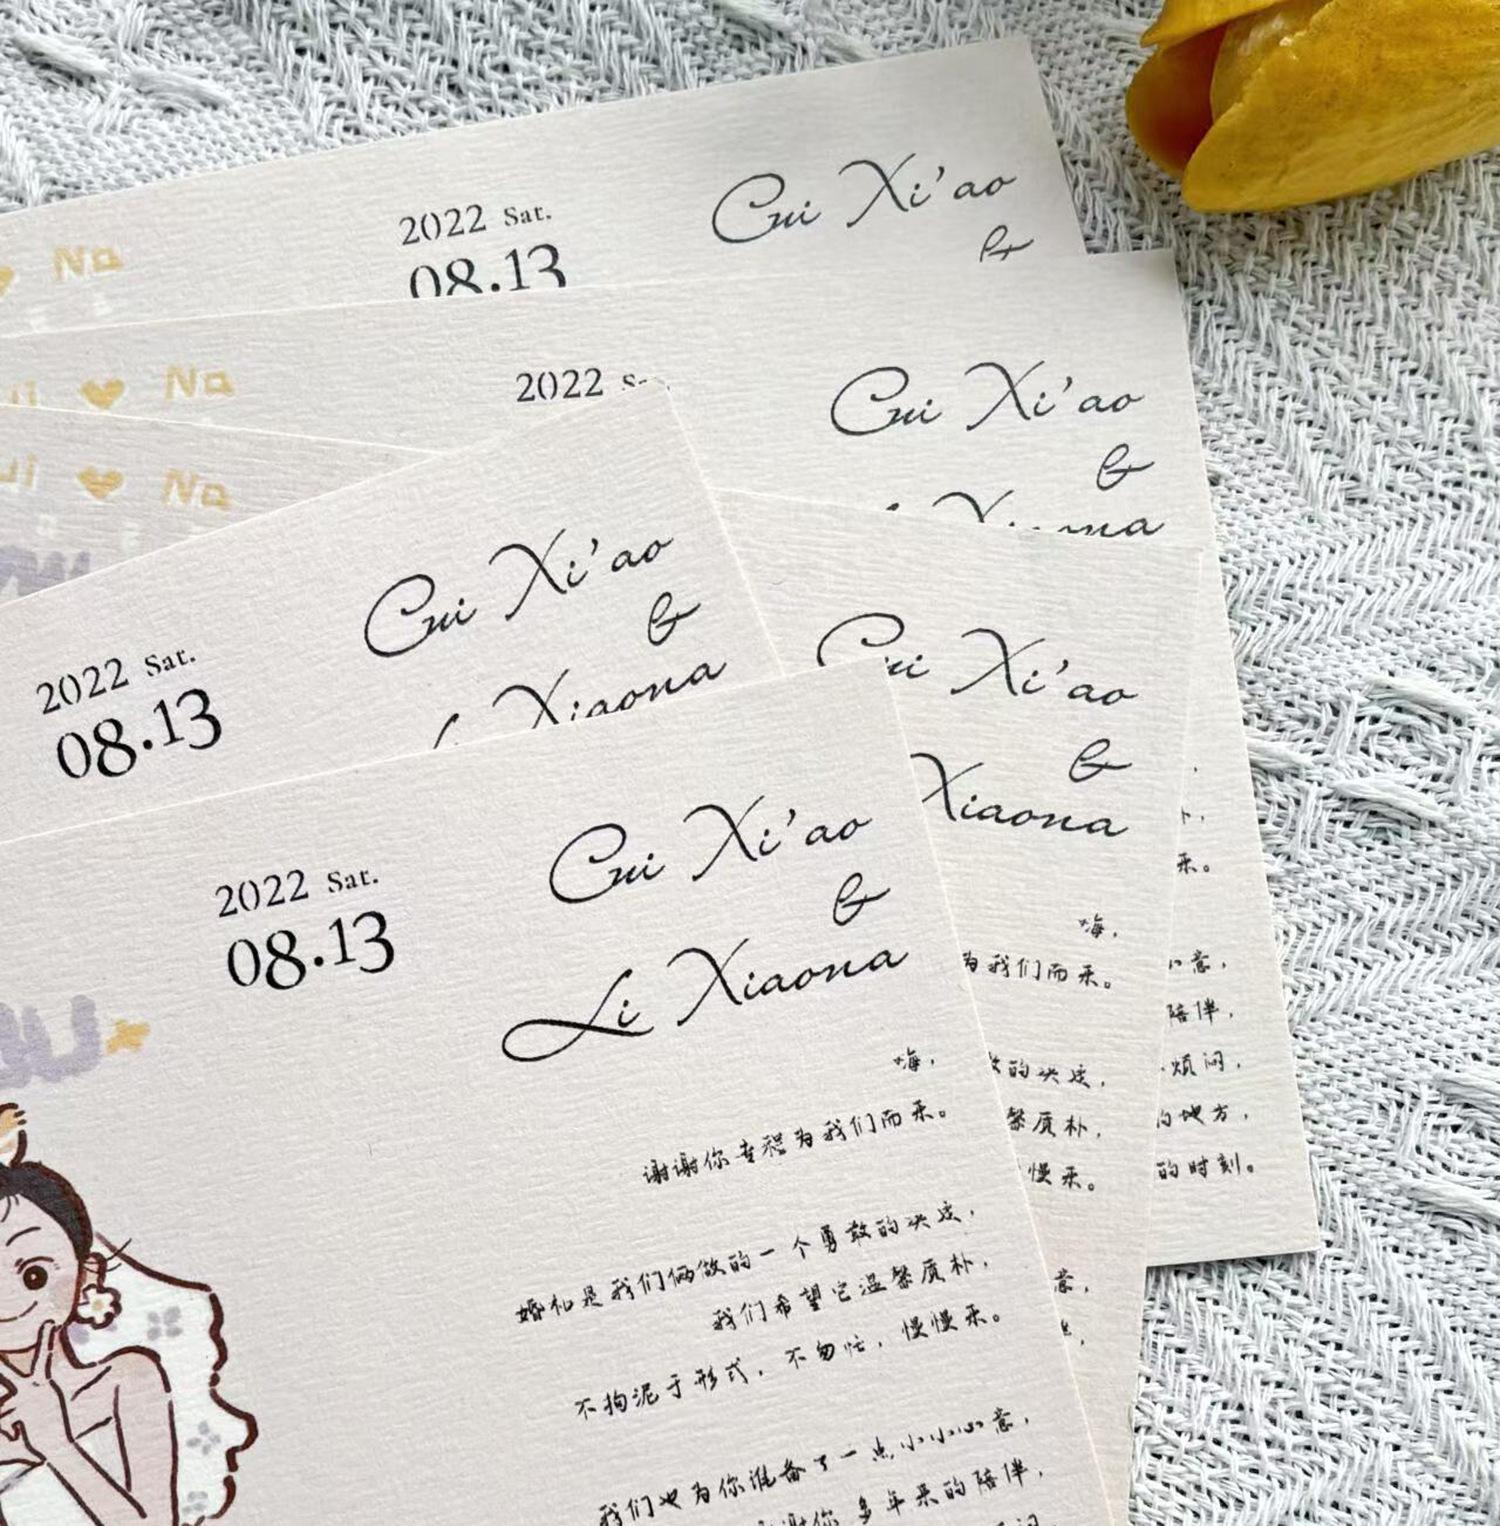 Na
2022 Sat.
08.13
Cui Xi'ao
&
Na
2022
Cui Xi'ao
&
Na
2022 Sat.
08.13
Cui Xi'ao
&
Xiaona
Cui Xi'ao
&
Xiaona
嗨，
为我们而来。
的决定，
馨质朴，
慢来。
意，
陪伴，
烦闷，
的地方，
的时刻。
2022 Sat.
08.13
Cui Xi'ao
&
Li Xiaona
嗨，
谢谢你专程为我们而来。
婚礼是我们俩做的一个勇敢的决定，
我们希望它温馨质朴，
不拘泥于形式，不匆忙，慢慢来。
我们也为你准备了一点小小心意，
谢你多年来的陪伴，